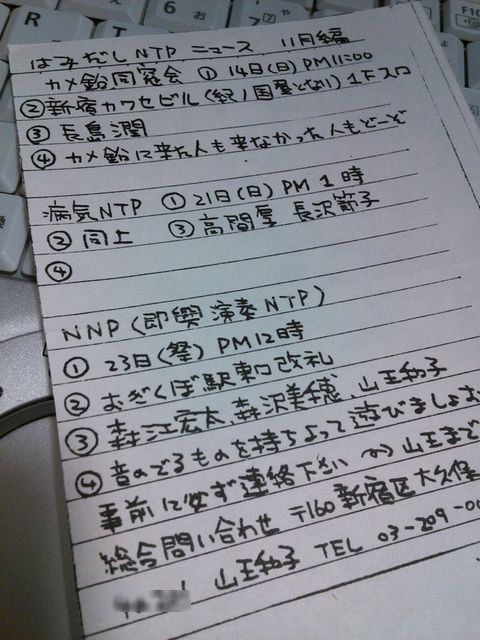 はみだしNTPニュース 11月編
カメ飴同窓会 ① 14日(日)PM11:00
② 新宿カワセビル(紀ノ国屋となり)1Fスロ
③ 長島潤
④ カメ飴に来た人も来なかった人もどーぞ
病気NTP ① 21日(日)PM1時
② 同上 ③ 高間厚 長沢節子
④
NNP(即興演奏NTP)
① 23日(祭)PM12時
② おぎくぼ駅東口改札
③ 森江宏太、森沢美穂、山王和子
④ 音のでるものを持ちよって遊びましょお
事前に必ず連絡下さい 山王まで
総合問い合わせ 〒160 新宿区大久保
山王和子 TEL 03-209-00